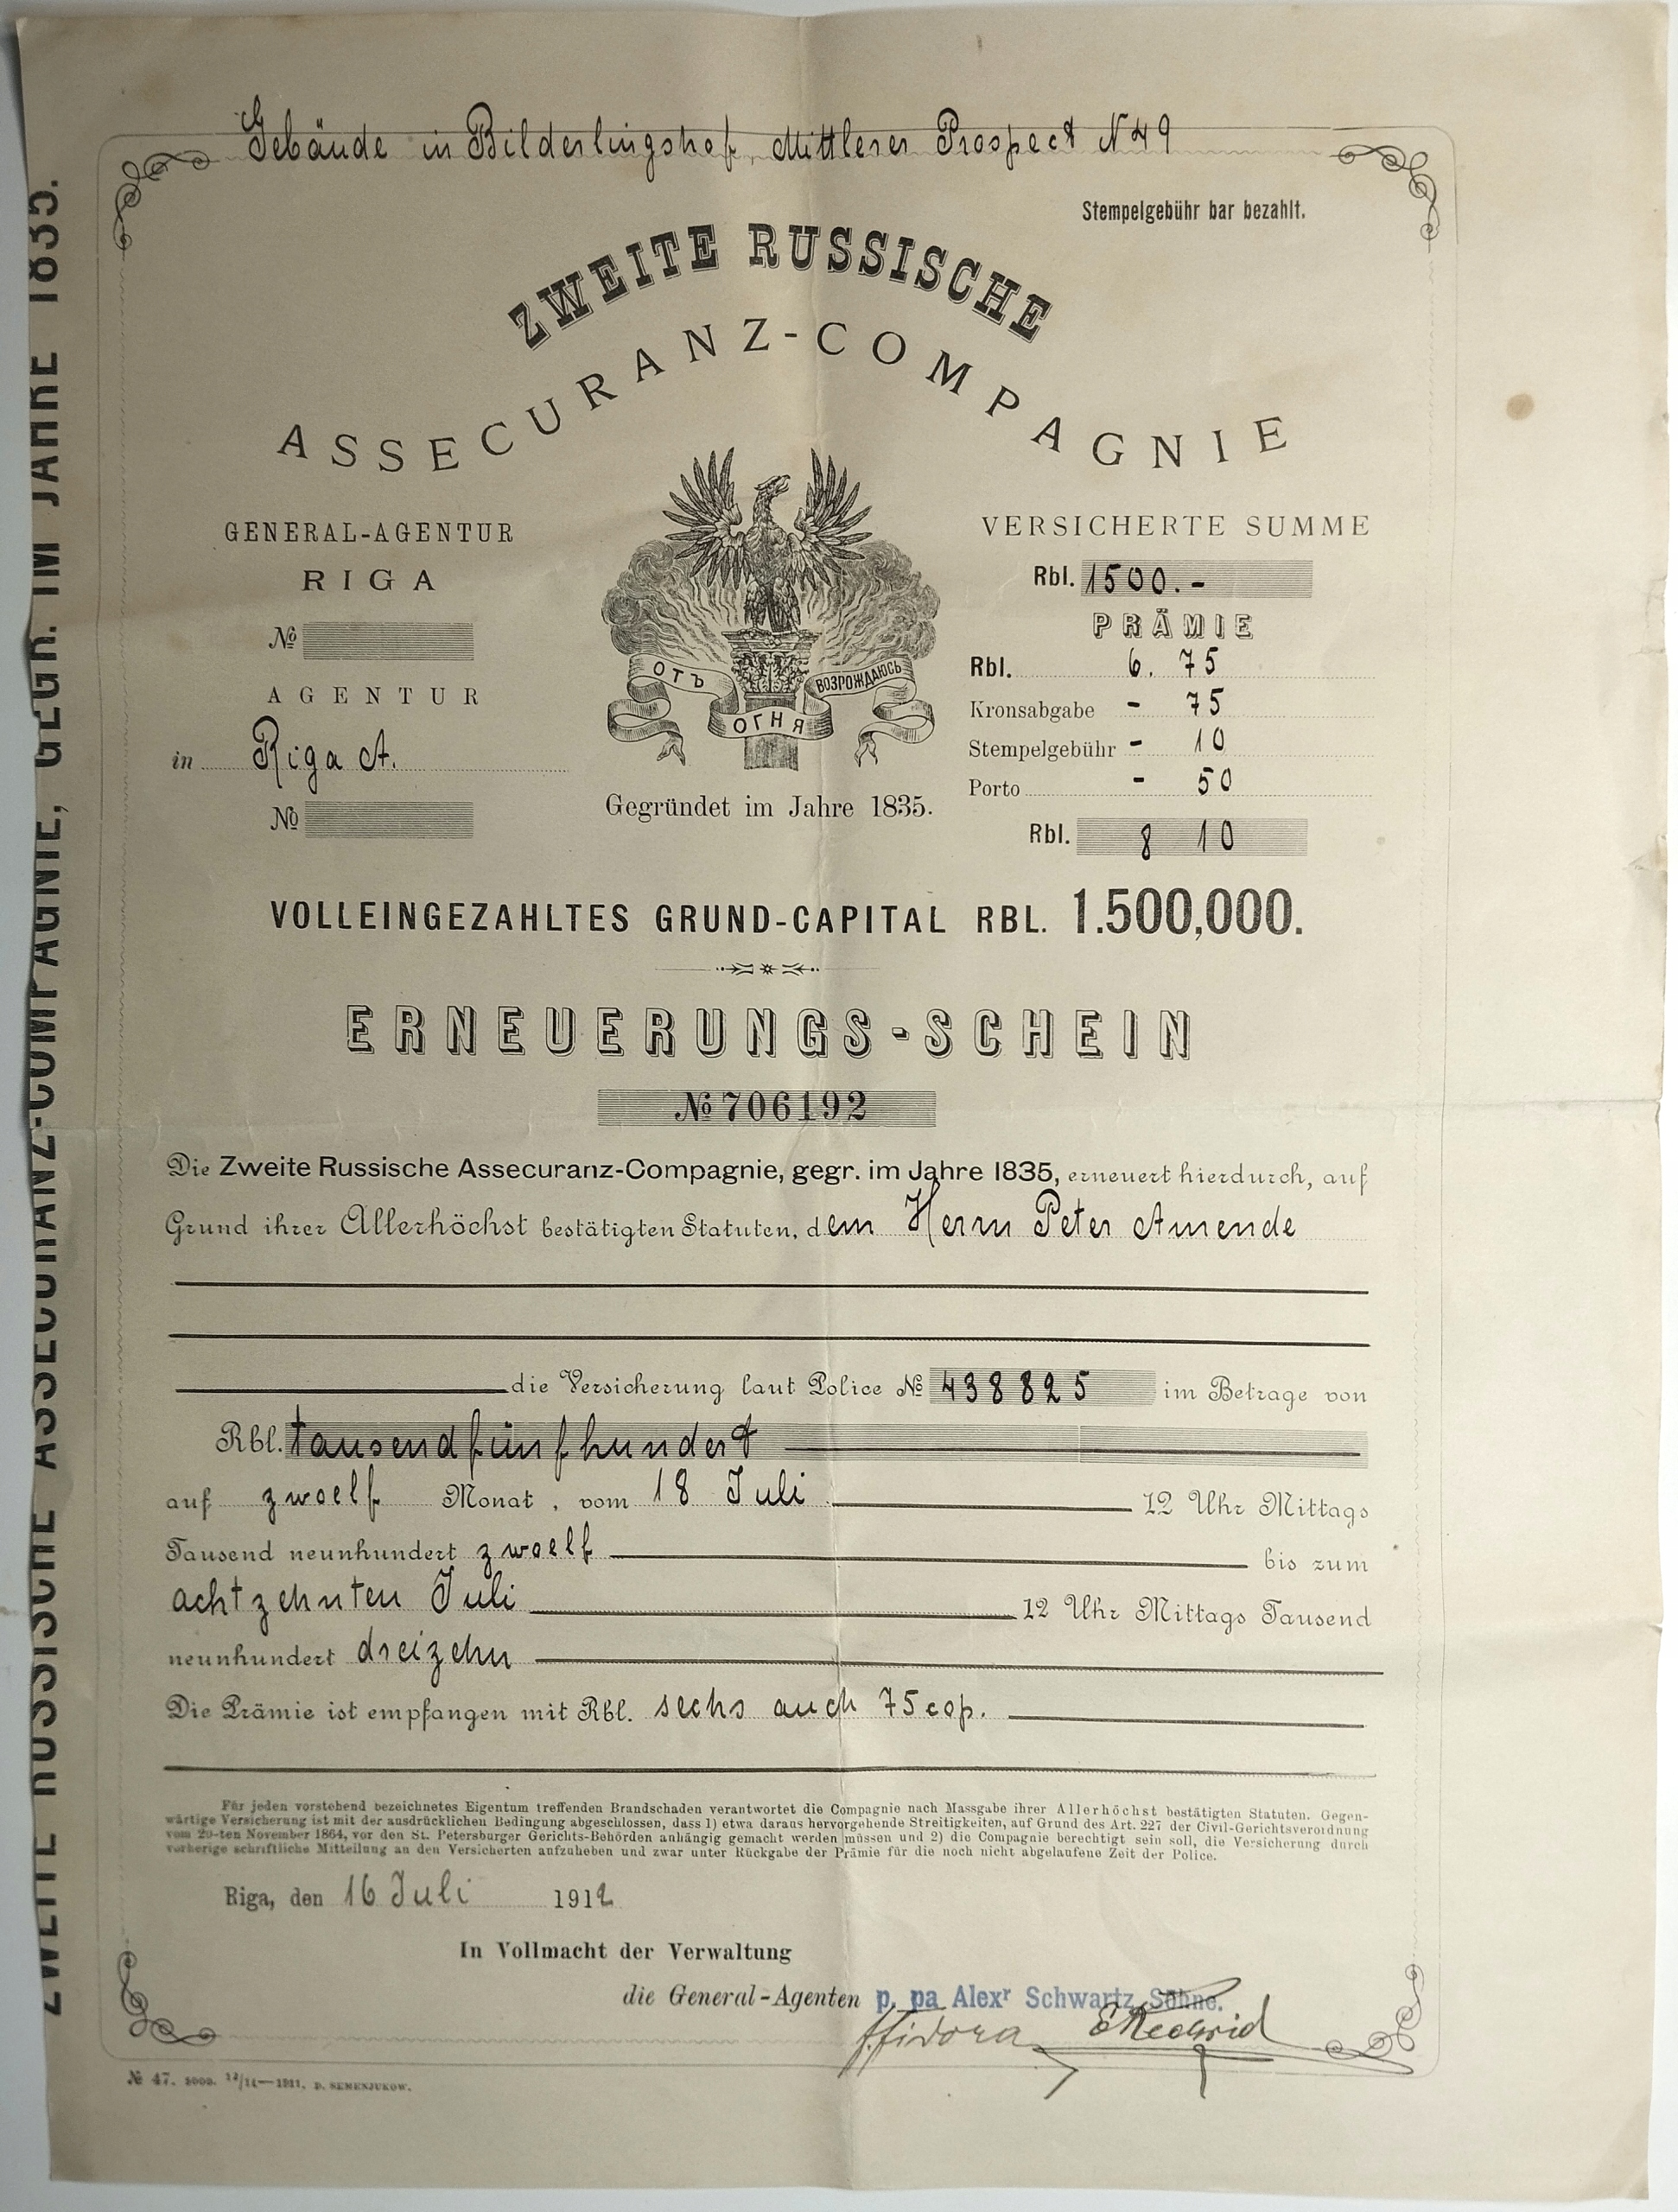 Gebäude in Bilderlingshof, Mittlerer Prospect N 49
Stempelgebühr bar bezahlt.
ZWEITE RUSSISCHE
ASSECURANZ-COMPAGNIE
GENERAL-AGENTUR
RIGA
№
AGENTUR
in Riga A.
№
ОТЪ
ОГНЯ
ВОЗРОЖДАЮСЬ
Gegründet im Jahre 1835.
VERSICHERTE SUMME
Rbl. 1500.-
PRÄMIE
Rbl. 6. 75
Kronsabgabe - 75
Stempelgebühr - 10
Porto - 50
Rbl. 8 10
VOLLEINGEZAHLTES GRUND-CAPITAL RBL. 1.500,000.
ERNEUERUNGS-SCHEIN
№ 706192
Die Zweite Russische Assecuranz-Compagnie, gegr. im Jahre 1835, erneuert hierdurch, auf
Grund ihrer Allerhöchst bestätigten Statuten, dem Herrn Peter Amende
die Versicherung laut Police № 438825 im Betrage von
Rbl. tausendfünfhundert
auf zwoelf Monat, vom 18 Juli 12 Uhr Mittags
Tausend neunhundert zwoelf bis zum
achtzehnten Juli 12 Uhr Mittags Tausend
neunhundert dreizehn
Die Prämie ist empfangen mit Rbl. sechs auch 75 cop.
Für jeden vorstehend bezeichnetes Eigentum treffenden Brandschaden verantwortet die Compagnie nach Massgabe ihrer Allerhöchst bestätigten Statuten. Gegen-
wärtige Versicherung ist mit der ausdrücklichen Bedingung abgeschlossen, dass 1) etwa daraus hervorgehende Streitigkeiten, auf Grund des Art. 227 der Civil-Gerichtsverordnung
vom 20-ten November 1864, vor den St. Petersburger Gerichts-Behörden anhängig gemacht werden müssen und 2) die Compagnie berechtigt sein soll, die Versicherung durch
vorherige schriftliche Mitteilung an den Versicherten aufzuheben und zwar unter Rückgabe der Prämie für die noch nicht abgelaufene Zeit der Police.
Riga, den 16 Juli 1912
In Vollmacht der Verwaltung
die General-Agenten p. pa Alexr Schwartz Söhne.
№ 47. 5000. 12/11—1911. D. SEMENJUKOW.
ZWEITE RUSSISCHE ASSECURANZ-COMPAGNIE, GEGR. IM JAHRE 1835.